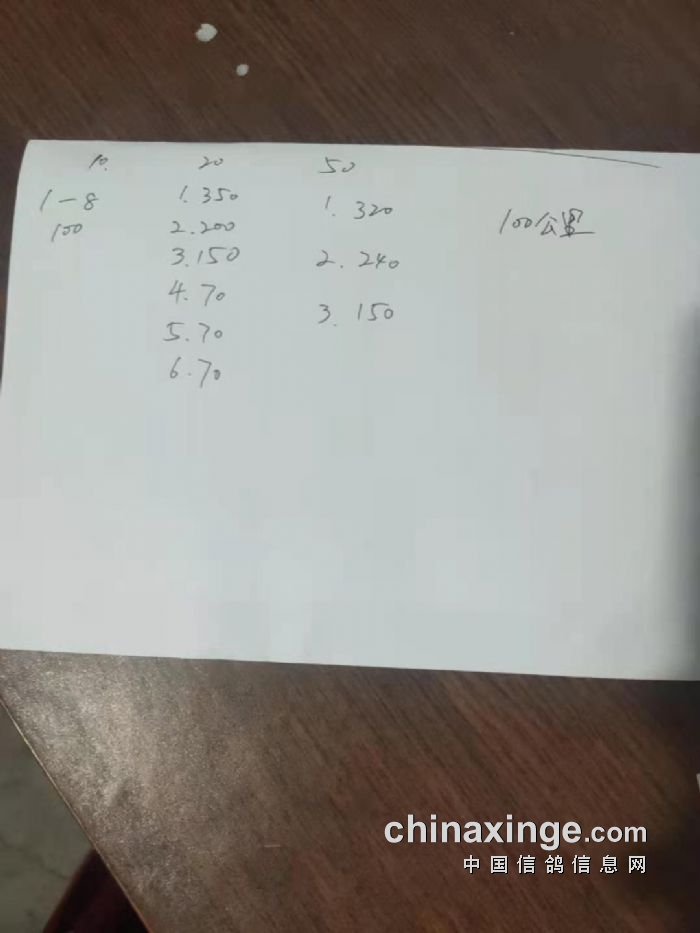 10. 20 50
1-8 1.350 1.320 100公里
100 2.200 2.240
3.150 3.150
4.70
5.70
6.70
chinaxinge.com
中国信鸽信息网